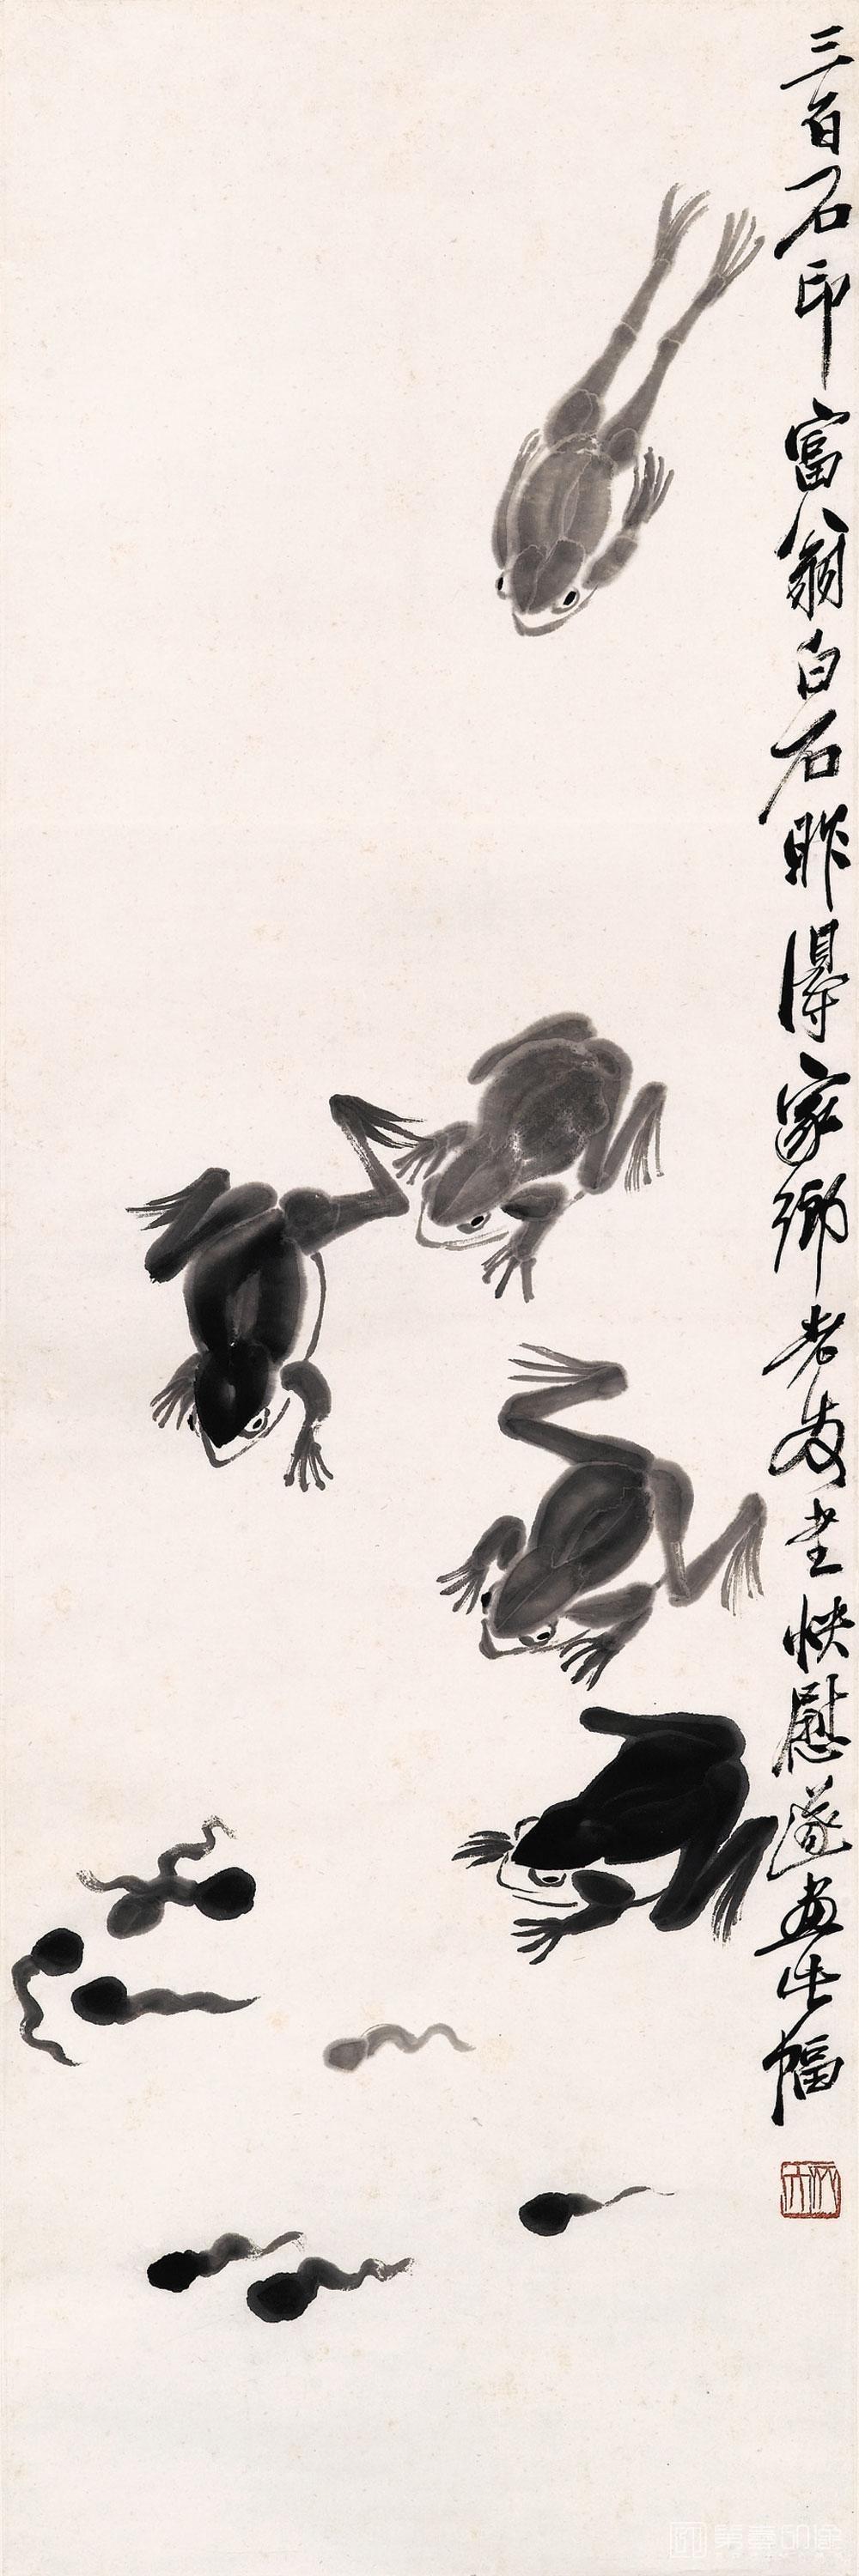 三百石印富翁白石昨得家鄉老友書快慰遂畫此幅
木人